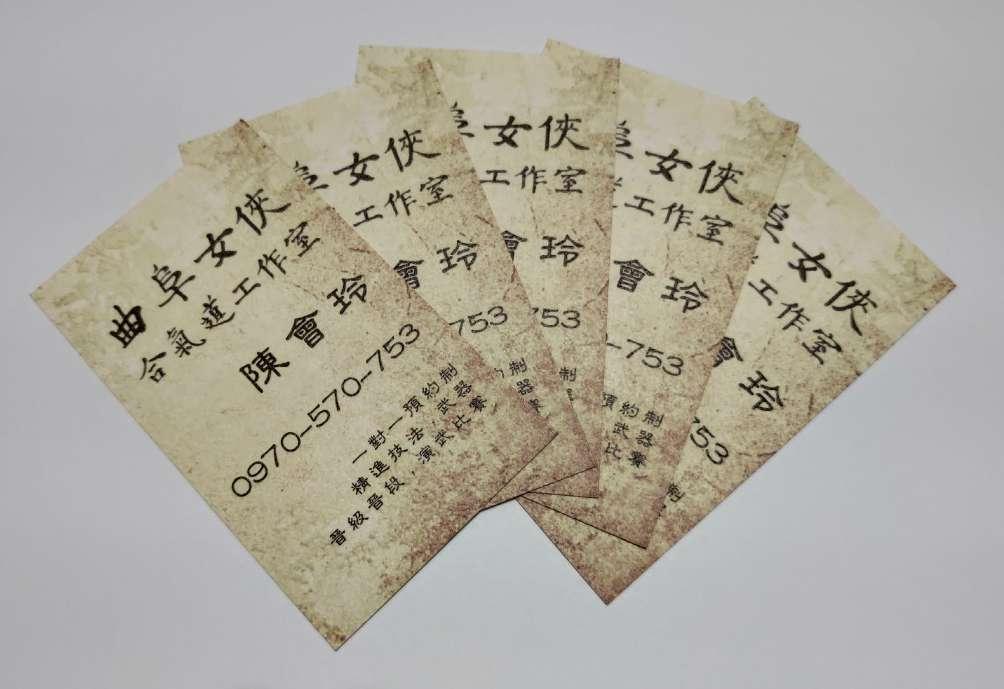 曲阜女俠
合氣道工作室
陳會玲
0970-570-753
一對一預約制
精進技法,武器
晉級晉段,演武比賽
阜女俠
工作室
會玲
753
阜女俠
工作室
會玲
753
制
器
賽
阜女俠
工作室
會玲
-753
預約制
武器
比賽
阜女俠
工作室
會玲
753